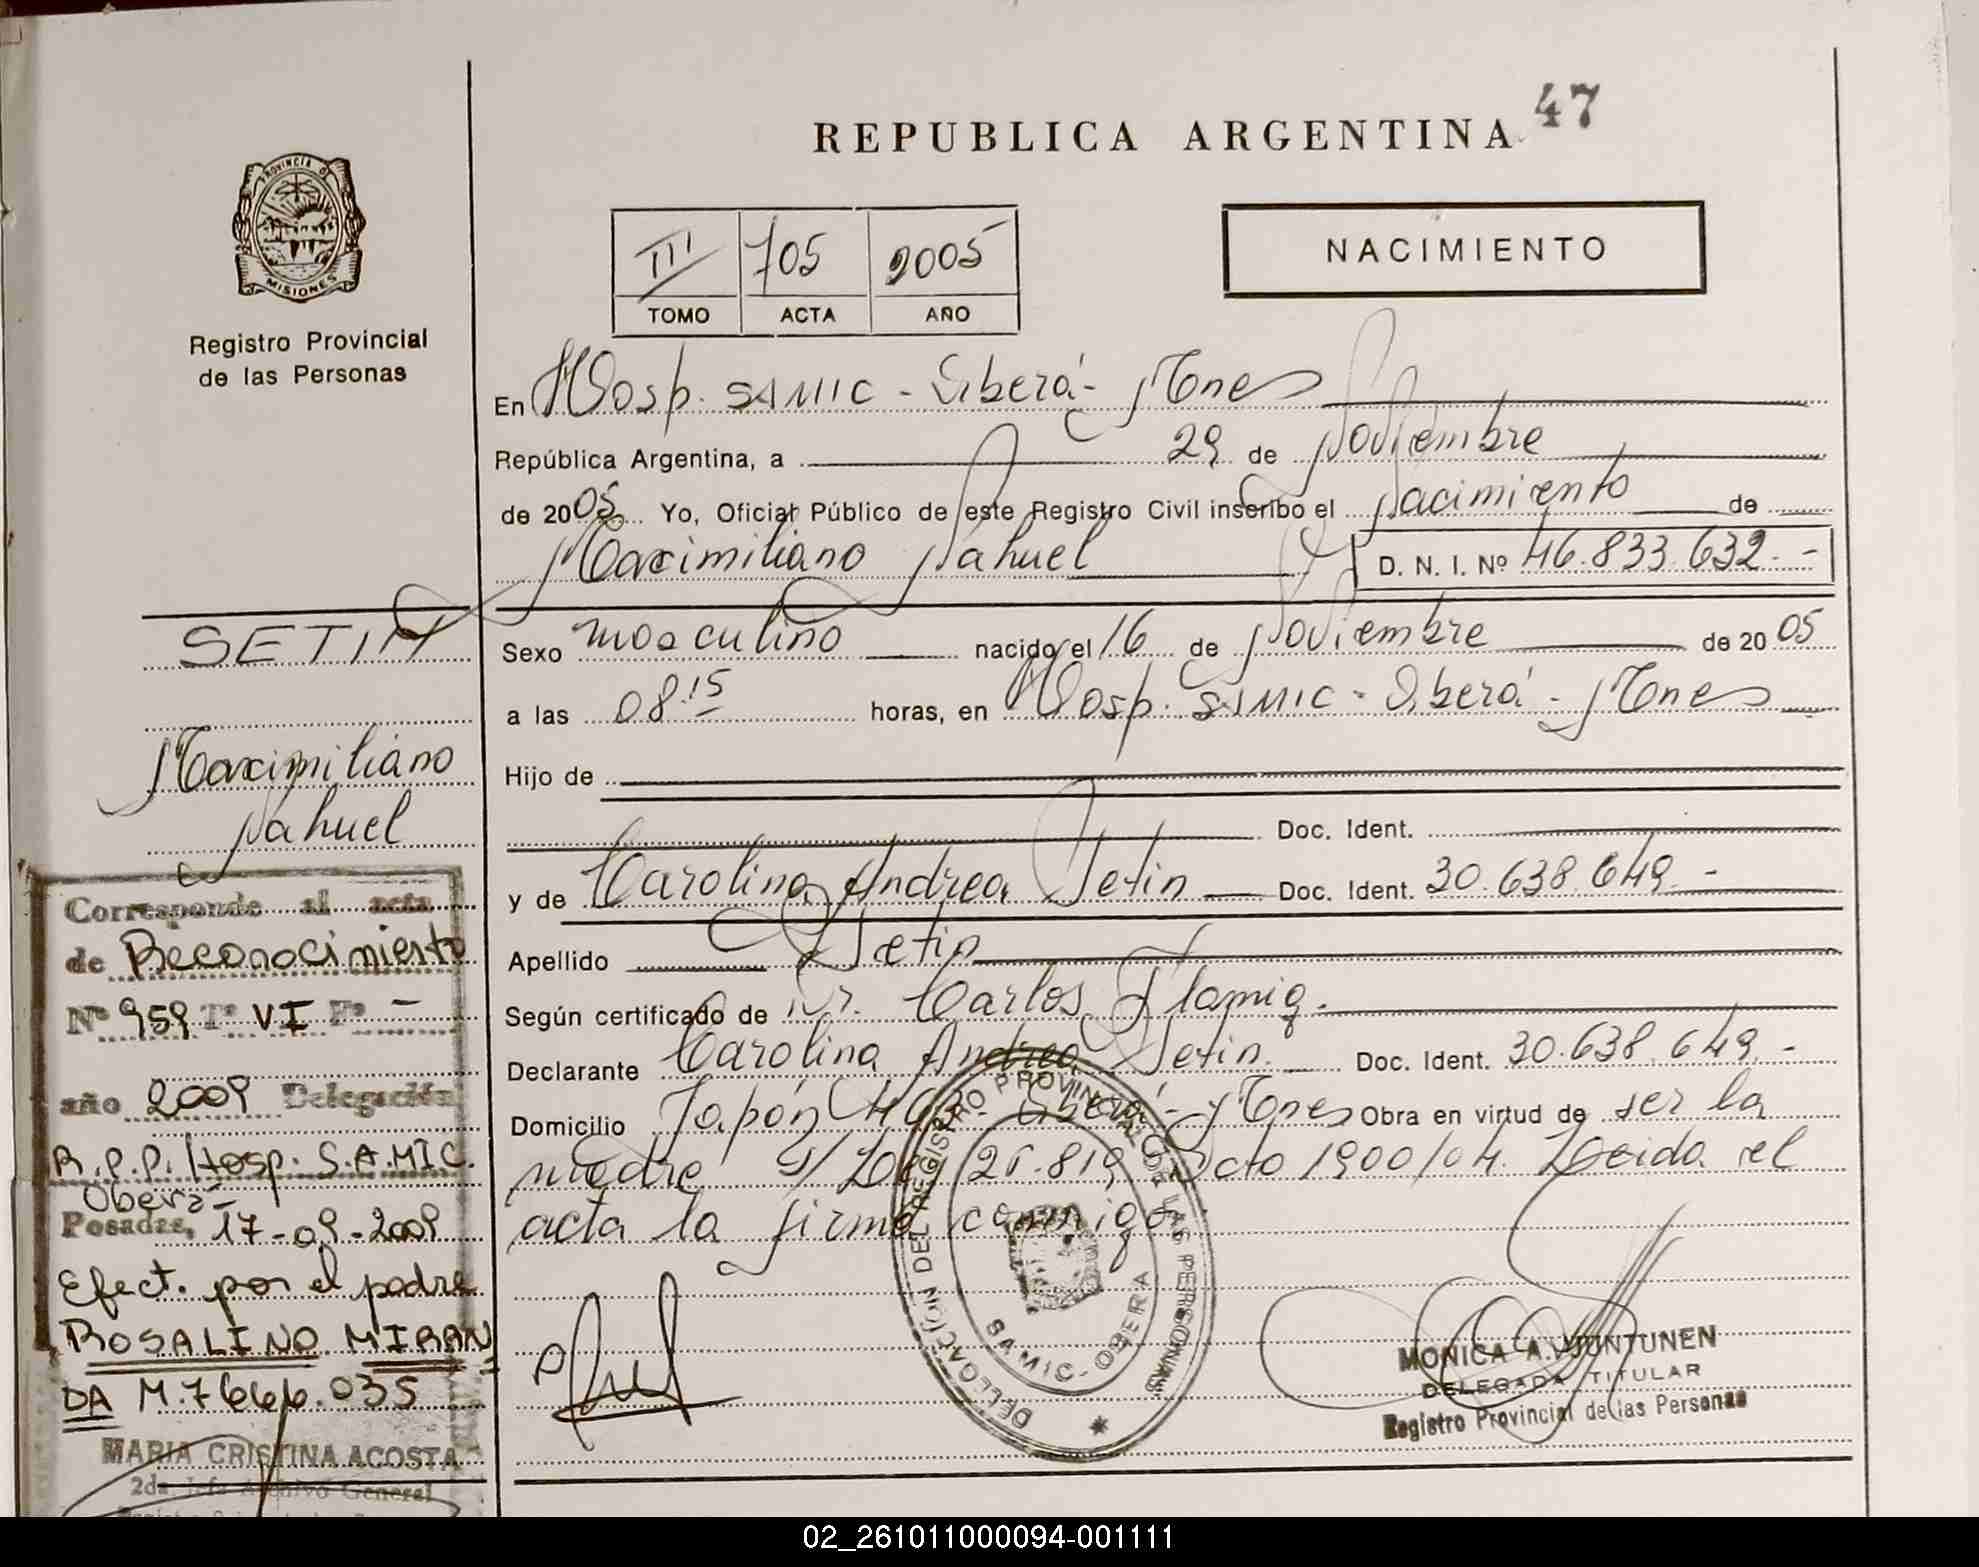 47
REPUBLICA ARGENTINA
PROVINCIA DE
MISIONES
Registro Provincial
de las Personas
III 705 2005
TOMO ACTA AÑO
NACIMIENTO
En Hosp. SAMIC - Oberá - Mnes
República Argentina, a 29 de Noviembre
de 2005 Yo, Oficial Público de este Registro Civil inscribo el Nacimiento de
Maximiliano Nahuel D. N. I. Nº 46.833.632.-
Sexo masculino nacido el 16 de Noviembre de 2005
a las 08:15 horas, en Hosp. SAMIC - Oberá - Mnes
Hijo de
Doc. Ident.
y de Carolina Andrea Setin Doc. Ident. 30.638.649.-
Apellido Setin
Según certificado de Dr. Carlos
Declarante Carolina Andrea Setin Doc. Ident. 30.638.649.-
Domicilio Japón Oberá - Mnes Obra en virtud de ser la
madre S/ Ley 26.819 Dcto 1900/04. Leida el
acta la firma conmigo.
DELEGACIÓN DEL REGISTRO PROVINCIAL DE LAS PERSONAS
SAMIC - OBERA
MONICA A. JUNTUNEN
DELEGADA TITULAR
Registro Provincial de las Personas
SETIN
Maximiliano
Nahuel
Corresponde al acta
de Reconocimiento
Nº 959 Tº VI Fº -
año 2009 Delegación
R.P.P. Hosp. S.A.MIC.
Oberá
Posadas, 17-09-2009
Efect. por el padre
ROSALINO MIRAN
DA M.7666.035
MARIA CRISTINA ACOSTA
2da Jefa Archivo General
02_261011000094-001111